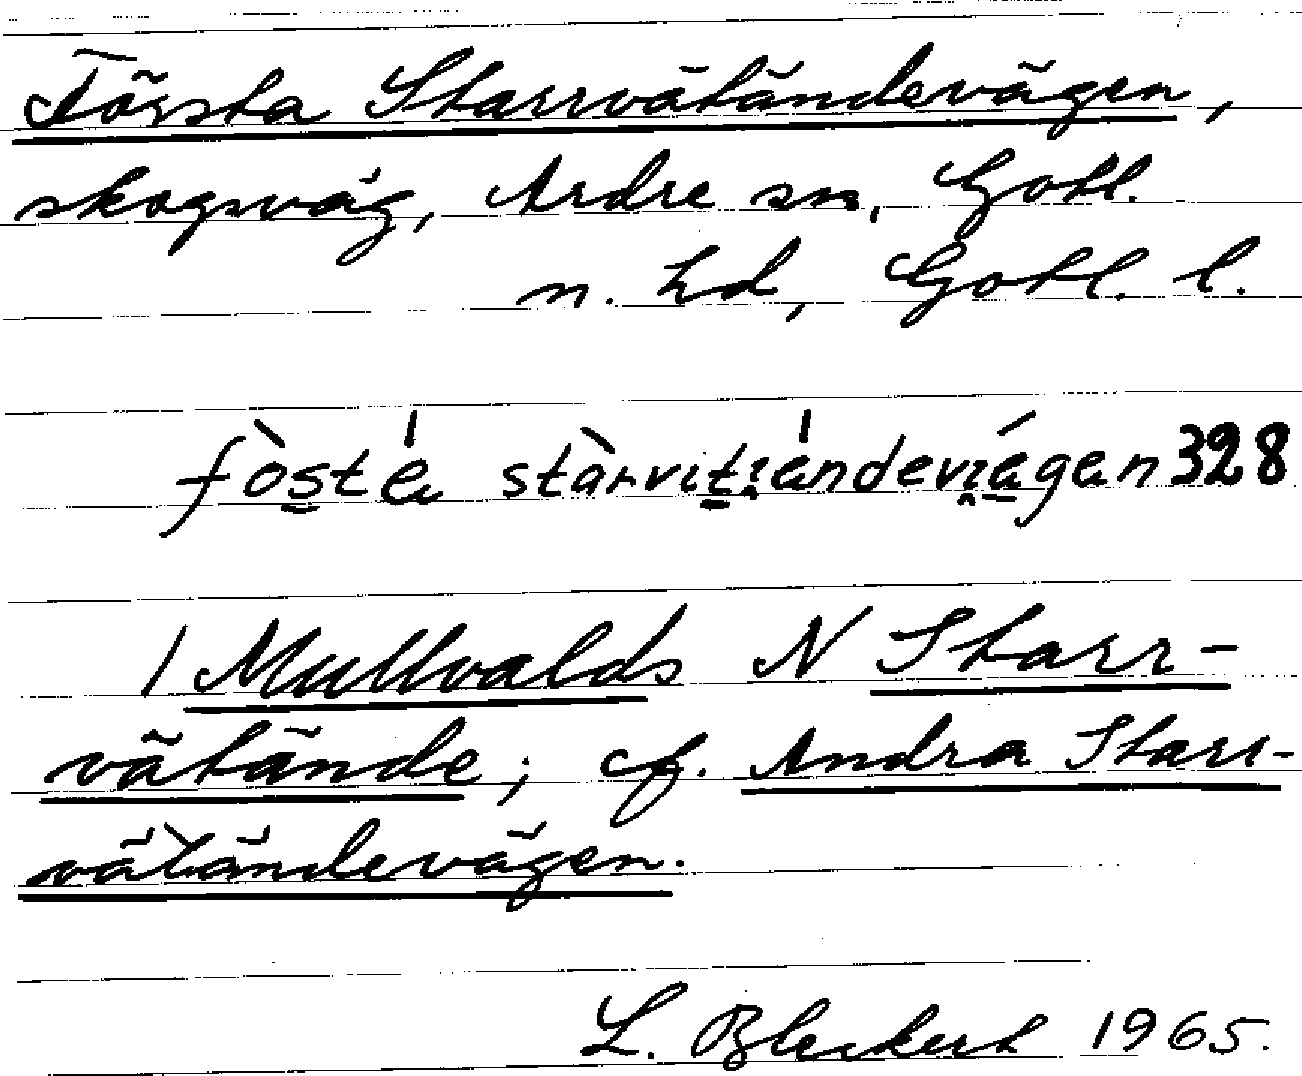 Första Starrvätändevägen,
skogsväg, Ardre sn, Gotl.
n. hd, Gotl. l.
328
I Mullvalds N Starr-
vätände; cf. Andra Starr-
vätändevägen.
L. Bleckert 1965.